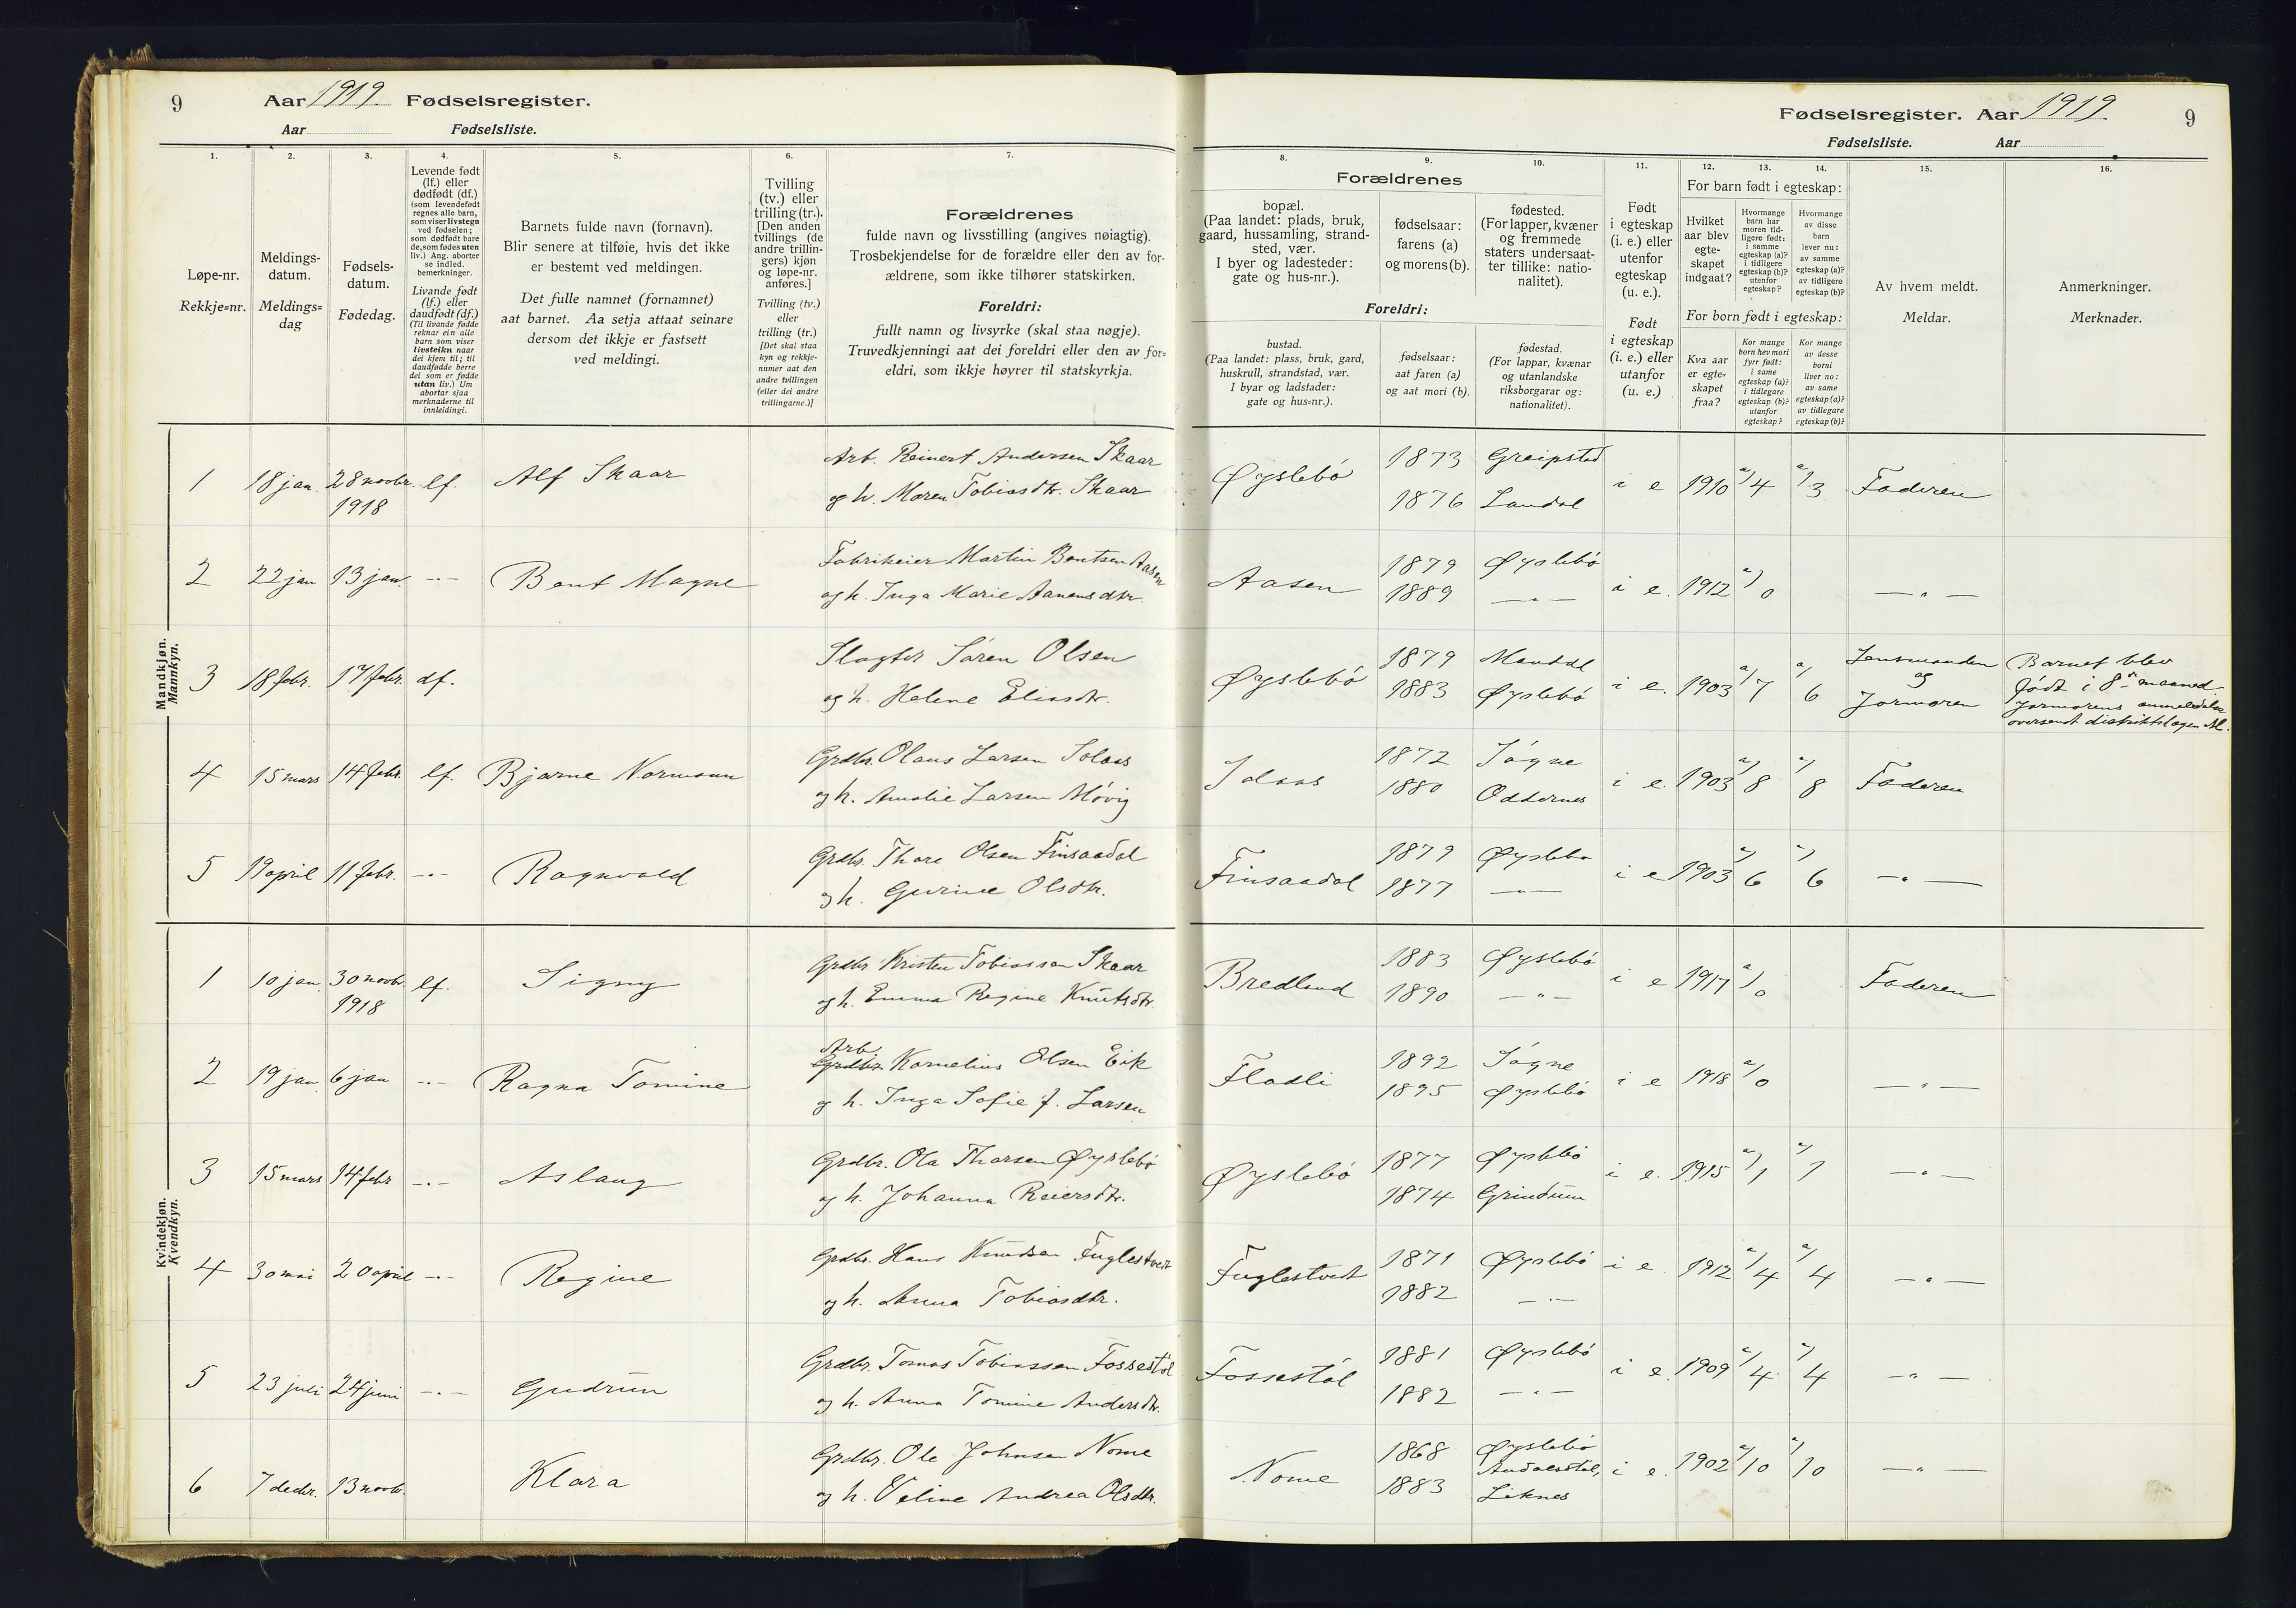 9 Aar 1919. Fødselsregister.
Aar Fødselsliste.
1. 2. 3. 4. 5. 6. 7.
Løpe-nr.
Rekkje=nr.
Meldings-
datum.
Meldings=
dag
Fødsels-
datum.
Fødedag.
Levende født
(lf.) eller
dødfødt (df.)
(som levendefødt
regnes alle barn,
som viser livstegn
ved fødselen;
som dødfødt bare
de, som fødes uten
liv.) Ang. aborter
se indled.
bemerkninger.
Livande født
(lf.) eller
daudfødt (df.)
(Til livande fødde
reknar ein alle
barn som viser
livsteikn naar
dei kjem til; til
daudfødde berre
dei som er fødde
utan liv.) Um
abortar sjaa
merknaderne til
innleidingi.
Barnets fulde navn (fornavn).
Blir senere at tilføie, hvis det ikke
er bestemt ved meldingen.
Det fulle namnet (fornamnet)
aat barnet. Aa setja attaat seinare
dersom det ikkje er fastsett
ved meldingi.
Tvilling
(tv.) eller
trilling (tr.).
[Den anden
tvillings (de
andre trillin-
gers) kjøn
og løpe-nr.
anføres.]
Tvilling (tv.)
eller
trilling (tr.)
[Det skal staa
kyn og rekkje-
numer aat den
andre tvillingen
(eller dei andre
trillingarne.)]
Forældrenes
fulde navn og livsstilling (angives nøiagtig).
Trosbekjendelse for de forældre eller den av for-
ældrene, som ikke tilhører statskirken.
Foreldri:
fullt namn og livsyrke (skal staa nøgje).
Truvedkjenningi aat dei foreldri eller den av for=
eldri, som ikkje høyrer til statskyrkja.
Mandkjøn.
Mannkyn.
1 18 jan. 28 novbr. lf. Alf Skaar Arb. Reinert Andersen Skaar
1918 og h. Maren Tobiasdtr. Skaar
2 22 jan 13 jan. -"- Bent Magne Fabrikeier Martin Bentsen Aasen
og h. Inga Marie Aanensdtr.
3 18 febr. 17 febr. df. Slagter Sören Olsen
og h. Helene Eliasdtr.
4 15 mars 14 febr. lf. Bjarne Normann Grdbr. Olaus Larsen Solaas
og h. Amalie Larsen Mövig
5 19 april 11 febr. -"- Ragnvald Grdbr. Thore Olsen Finsaadal
og h. Gurine Olsdtr.
Kvindekjøn.
Kvendkyn.
1 10 jan. 30 novbr. lf. Signy Grdbr Kristen Tobiassen Skaar
1918 og h. Emma Regine Knutsdtr.
Arb
2 19 jan. 6 jan -"- Ragna Tomine Grdbr. Kornelius Olsen Eik
og h. Inga Sofie f. Larsen
3 15 mars 14 febr -"- Aslaug Grdbr. Ola Tharsen Øyslebö
og h. Johanna Reiersdtr.
4 30 mai 20 april -"- Regine Grdbr. Hans Knudsen Fuglestveit
og h. Anna Tobiasdtr.
5 23 juli 24 juni -"- Gudrun Grdbr. Tomas Tobiassen Fossestöl
og h. Anna Tomine Andersdtr.
6 7 decbr. 13 novbr. Klara Grdbr. Ole Johnsen Nome
og h. Veline Andrea Olsdtr.
Fødselsregister. Aar 1919. 9
Fødselsliste. Aar
8. 9. 10. 11. 12. 13. 14. 15. 16.
Forældrenes
bopæl.
(Paa landet: plads, bruk,
gaard, hussamling, strand-
sted, vær.
I byer og ladesteder:
gate og hus-nr.).
fødselsaar:
farens (a)
og morens (b).
fødested.
(For lapper, kvæner
og fremmede
staters undersaat-
ter tillike: natio-
nalitet).
Foreldri:
bustad.
(Paa landet: plass, bruk, gard,
huskrull, strandstad, vær.
I byar og ladstader:
gate og hus=nr.).
fødselsaar:
aat faren (a)
og aat mori (b).
fødestad.
(For lappar, kvænar
og utanlandske
riksborgarar og:
nationalitet).
Født
i egteskap
(i. e.) eller
utenfor
egteskap
(u. e.).
Født
i egteskap
(i. e.) eller
utanfor
(u. e.)
For barn født i egteskap:
Hvilket
aar blev
egte-
skapet
indgaat?
Hvormange
barn har
moren tid-
ligere født:
i samme
egteskap (a)?
i tidligere
egteskap (b)?
utenfor
egteskap?
Hvormange
av disse
barn
lever nu:
av samme
egteskap (a)?
av tidligere
egteskap (b)?
For born født i egteskap:
Kva aar
er egte=
skapet
fraa?
Kor mange
born hev mori
fyrr født:
i same
egteskap (a)?
i tidlegare
egteskap (b)?
utanfor
egteskap?
Kor mange
av desse
borni
liver no:
av same
egteskap (a)?
av tidlegare
egteskap (b)?
Av hvem meldt.
Meldar.
Anmerkninger.
Merknader.
Øyslebö 1873 Greipstad i e 1910 a/4 a/3 Faderen
1876 Laudal
Aasen 1879 Øyslebö i e. 1912 a/0 —"—
1889 —"—
Øyslebö 1879 Mandal i e. 1903 a/7 a/6 Lensmanden og Jormoren
1883 Øyslebö
Barnet blev
födt i 8de maaned
Jormorens anmeldelse
oversendt distriktslægen
Solaas 1872 Sögne i e. 1903 a/8 a/8 Faderen
1880 Oddernes
Finsaadal 1879 Øyslebö i e 1903 a/6 a/6 —"—
1877 —"—
Bredland 1883 Øyslebö i e 1917 a/0 Faderen
1890 —"—
Fladli 1892 Sögne i e 1918 a/0 —"—
1895 Øyslebö
Øyslebö 1877 Øyslebö i e. 1915 a/1 a/1 —"—
1874 Grindum
Fuglestveit 1871 Øyslebö i e 1912 a/4 a/4 —"—
1882 —"—
Fossestöl 1881 Øyslebö i e. 1909 a/4 a/4 —"—
1882 —"—
Nome 1868 Øyslebö i e. 1902 a/10 a/10 —"—
1883 Liknes